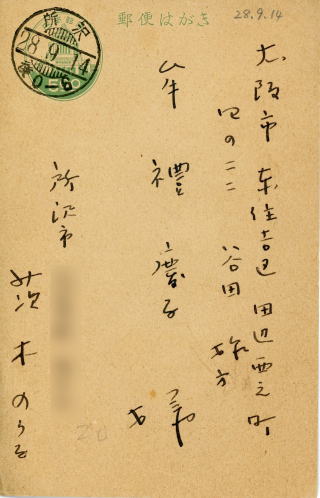 郵便はがき
28.9.14
所沢
28.9.14
後0-6
大阪市東住吉区田辺西之町
四の二二 谷田 様方
牟禮慶子様
所沢市
茨木のり子